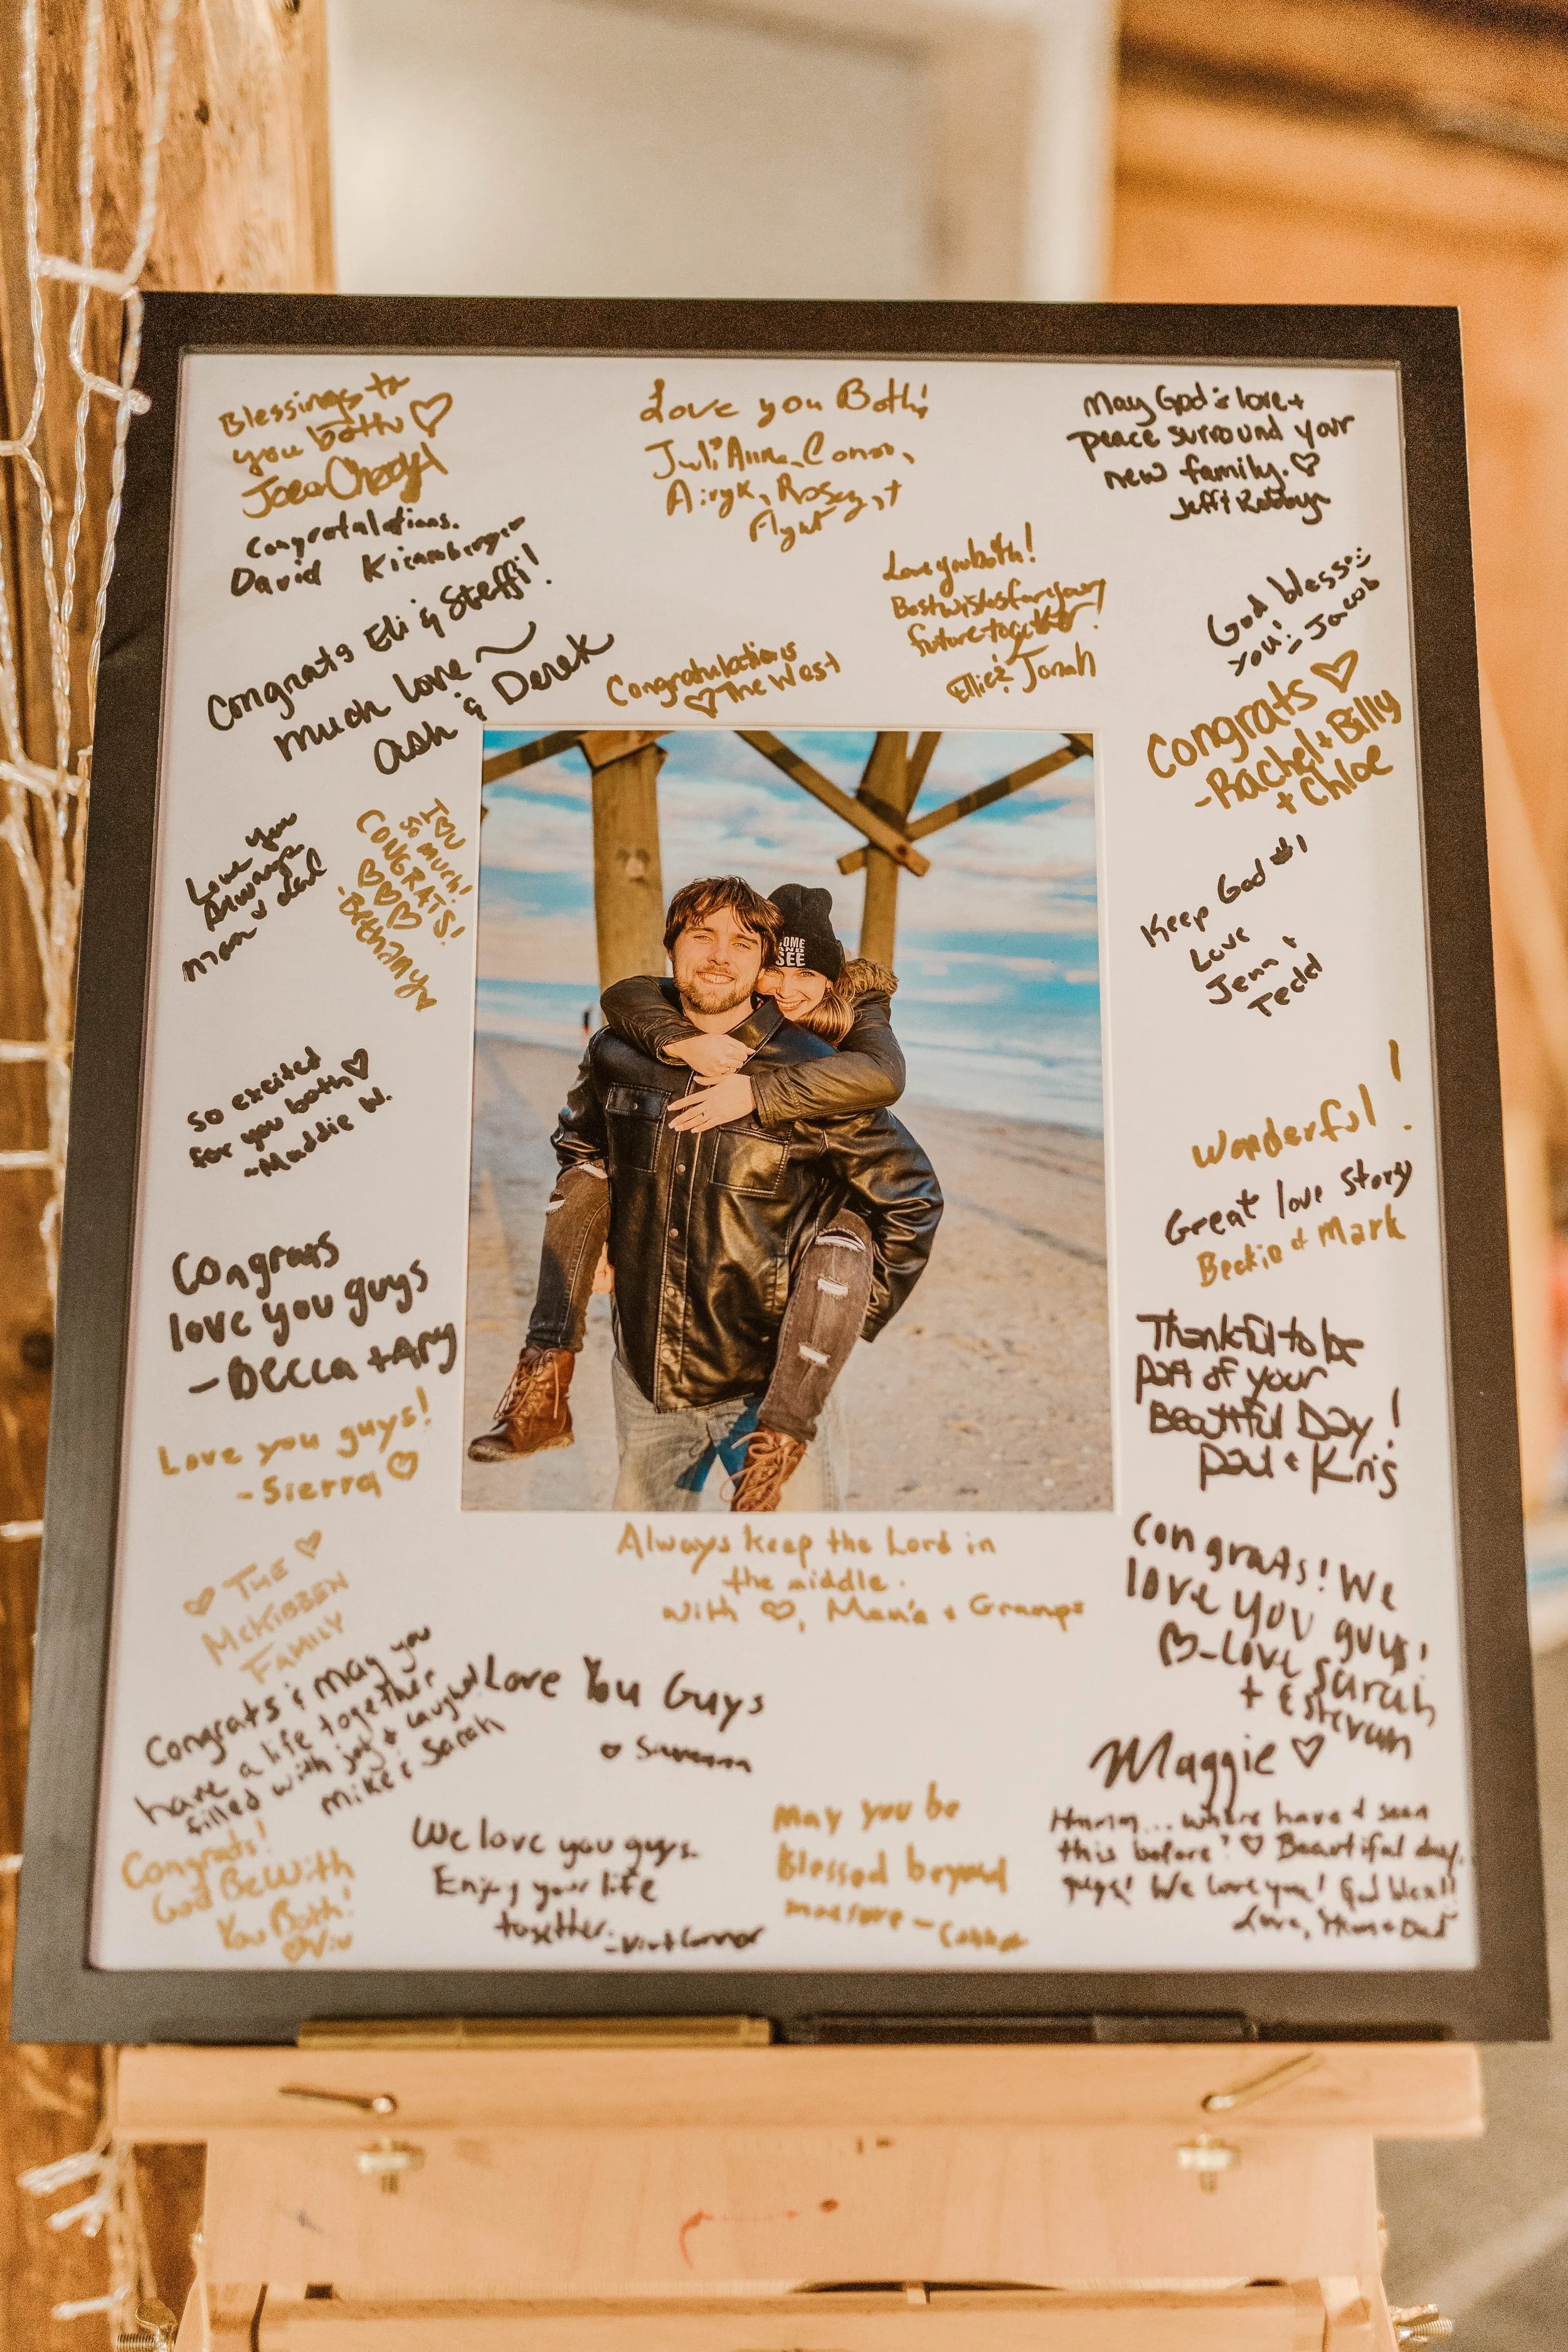 Blessings to
you both ♡
Love you Both!
JuliAnna, Conor,
May God's love +
peace surround your
new family. ♡
Jeff + Robbyn
Congratulations.
David
Congrats Eli & Steffi!
much love ~
Ash & Derek
Congratulations
♡ The West
Love you both!
Best wishes for your
future together!
Ellie & Jonah
God bless
you! - Jacob
Congrats ♡
- Rachel + Billy
+ Chloe
Love you
Always
mom & dad
I ♡ U
so much!
CONGRATS!
♡♡♡
Bethany ♡
COME
AND
SEE
Keep God #1
Love
Jenn &
Tedd
so excited
for you both ♡
~Maddie W.
Wonderful!
Great love Story
Beckie & Mark
Congrats
love you guys
- Becca + Amy
Thankful to be
part of your
Beautiful Day!
Paul & Kris
Love you guys!
- Sierra ♡
♡ THE ♡
McKIBBEN
FAMILY
Always keep the Lord in
the middle.
with ♡, & Gramps
Congrats! We
love you guys!
♡ - Love Sarah
+ Estevan
Congrats & may you
have a life together
filled with joy & laughter!
Mike & Sarah
Love You Guys
♡ Savanna
Maggie ♡
Congrats!
God Be With
You Both!
♡ Viv
We love you guys.
Enjoy your life
together.
May you be
Blessed beyond
measure -
Hmmm... where have I seen
this before? ♡ Beautiful day,
guys! We love you! God bless!!
Love, Mom & Dad